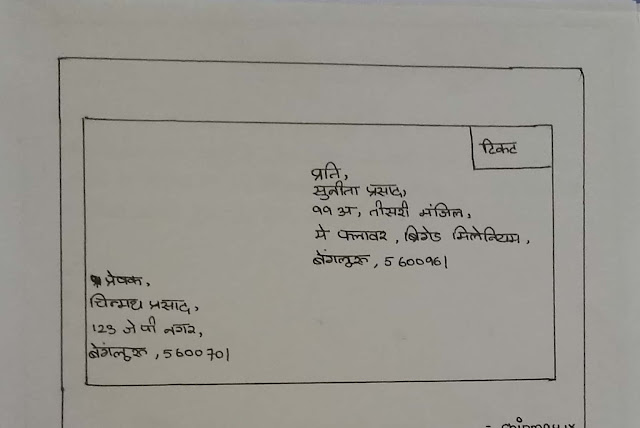 टिकट
प्रति,
सुनीता प्रसाद,
११ अ, तीसरी मंजिल,
मे फ्लावर, ब्रिगेड मिलेनियम,
बेंगलूरू, 5600961
प्रेषक,
चिन्मय प्रसाद,
123 जे पी नगर,
बेंगलूरू, 5600701